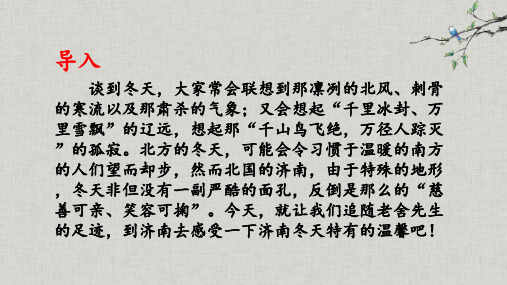 导入
谈到冬天，大家常会联想到那凛冽的北风、刺骨
的寒流以及那肃杀的气象；又会想起“千里冰封、万
里雪飘”的辽远，想起那“千山鸟飞绝，万径人踪灭
”的孤寂。北方的冬天，可能会令习惯于温暖的南方
的人们望而却步，然而北国的济南，由于特殊的地形
，冬天非但没有一副严酷的面孔，反倒是那么的“慈
善可亲、笑容可掬”。今天，就让我们追随老舍先生
的足迹，到济南去感受一下济南冬天特有的温馨吧！